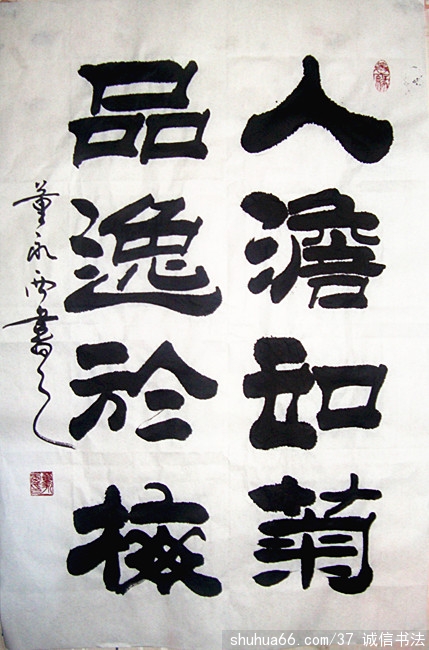 人澹如菊
品逸於梅
董永西書之
shuhua66.com/37 诚信书法